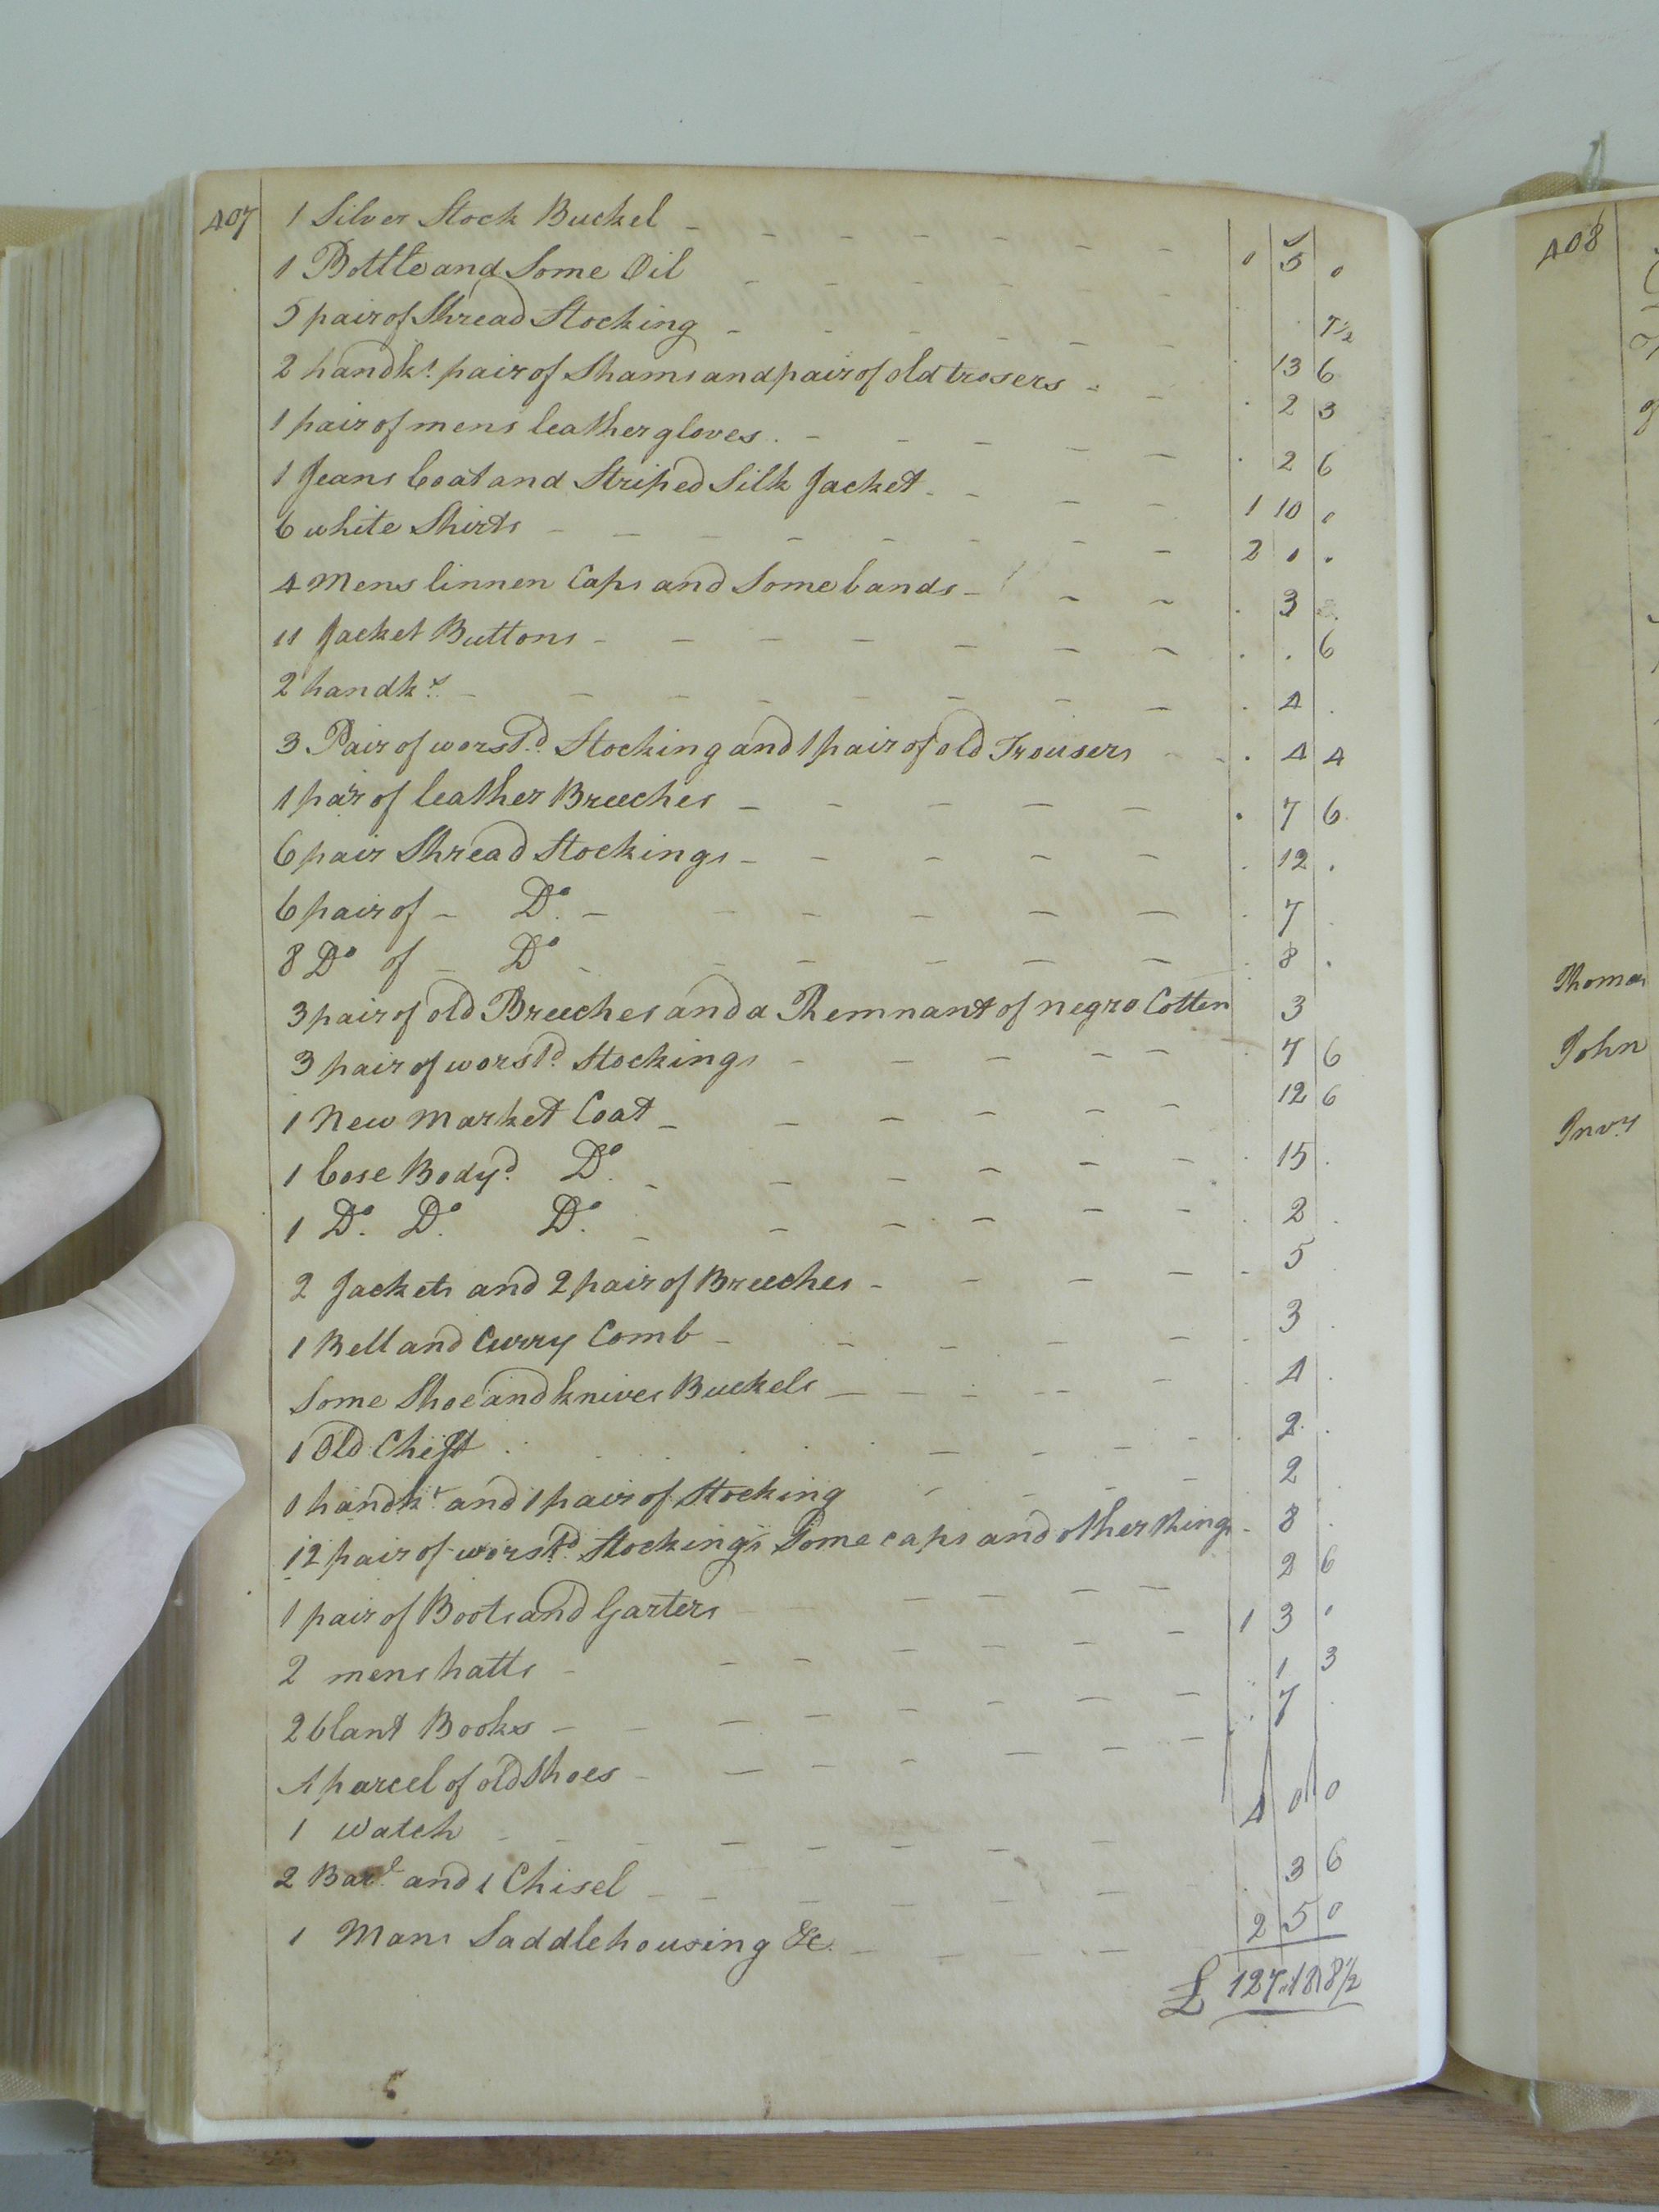 407
1 Silver Stock Buckel - - - - - - - 0 5 0
1 Bottle and Some Oil - - - - - - 7½
5 pair of Thread Stocking - - - - - - 13 6
2 handk.s pair of Shams and pair of old trosers - - . 2 3
1 pair of mens leather gloves . - - - - - . 2 6
1 Jeans Coat and Striped Silk Jacket - - - - 1 10 0
6 white Shirts - - - - - - - - 2 0 .
4 Mens linnen Caps and Some bands - - - . 3
11 Jacket Buttons - - - - - - - . . 6
2 handk.s - - - - - - - - . 4 .
3 Pair of worst.d Stocking and 1 pair of old Trousers - - . 4 4
1 pair of leather Breeches - - - - - . 7 6
6 pair Thread Stockings - - - - - . 12 .
6 pair of - Do. - - - - - - . 7 .
8 Do of - Do - - - - - - . 8 .
3 pair of old Breeches and a Remnant of negro Cotten 3
3 pair of worst.d Stockings - - - - - . 7 6
1 New Market Coat - - - - - - 12 6
1 Cose Body.d Do. - - - - - - . 15 .
1 Do. Do. Do. - - - - - - . 2 .
2 Jackets and 2 pair of Breeches - - - - - 5
1 Bell and Curry Comb - - - - - - 3 .
Some Shoe and knives Buckels - - - - - . 4 .
1 Old Chest . . . . - - - - . 2 .
1 handk.r and 1 pair of Stocking - - - - 2 .
12 pair of worst.d Stockings Some caps and other things - 8 .
1 pair of Boots and Garters - - - - 2 6
2 mens hatts - - - - - - - 1 3 0
2 blank Books - - - - - - - - 1 3
A parcel of old Shoes - - - - - - - . 7 .
1 Watch - - - - - - - 4 0 0
2 Bar.l and 1 Chisel - - - - - - . 3 6
1 Mans Saddle housing &c. - - - - 2 5 0
£ 127 18 8½
408
Thomas
John
Inv.y